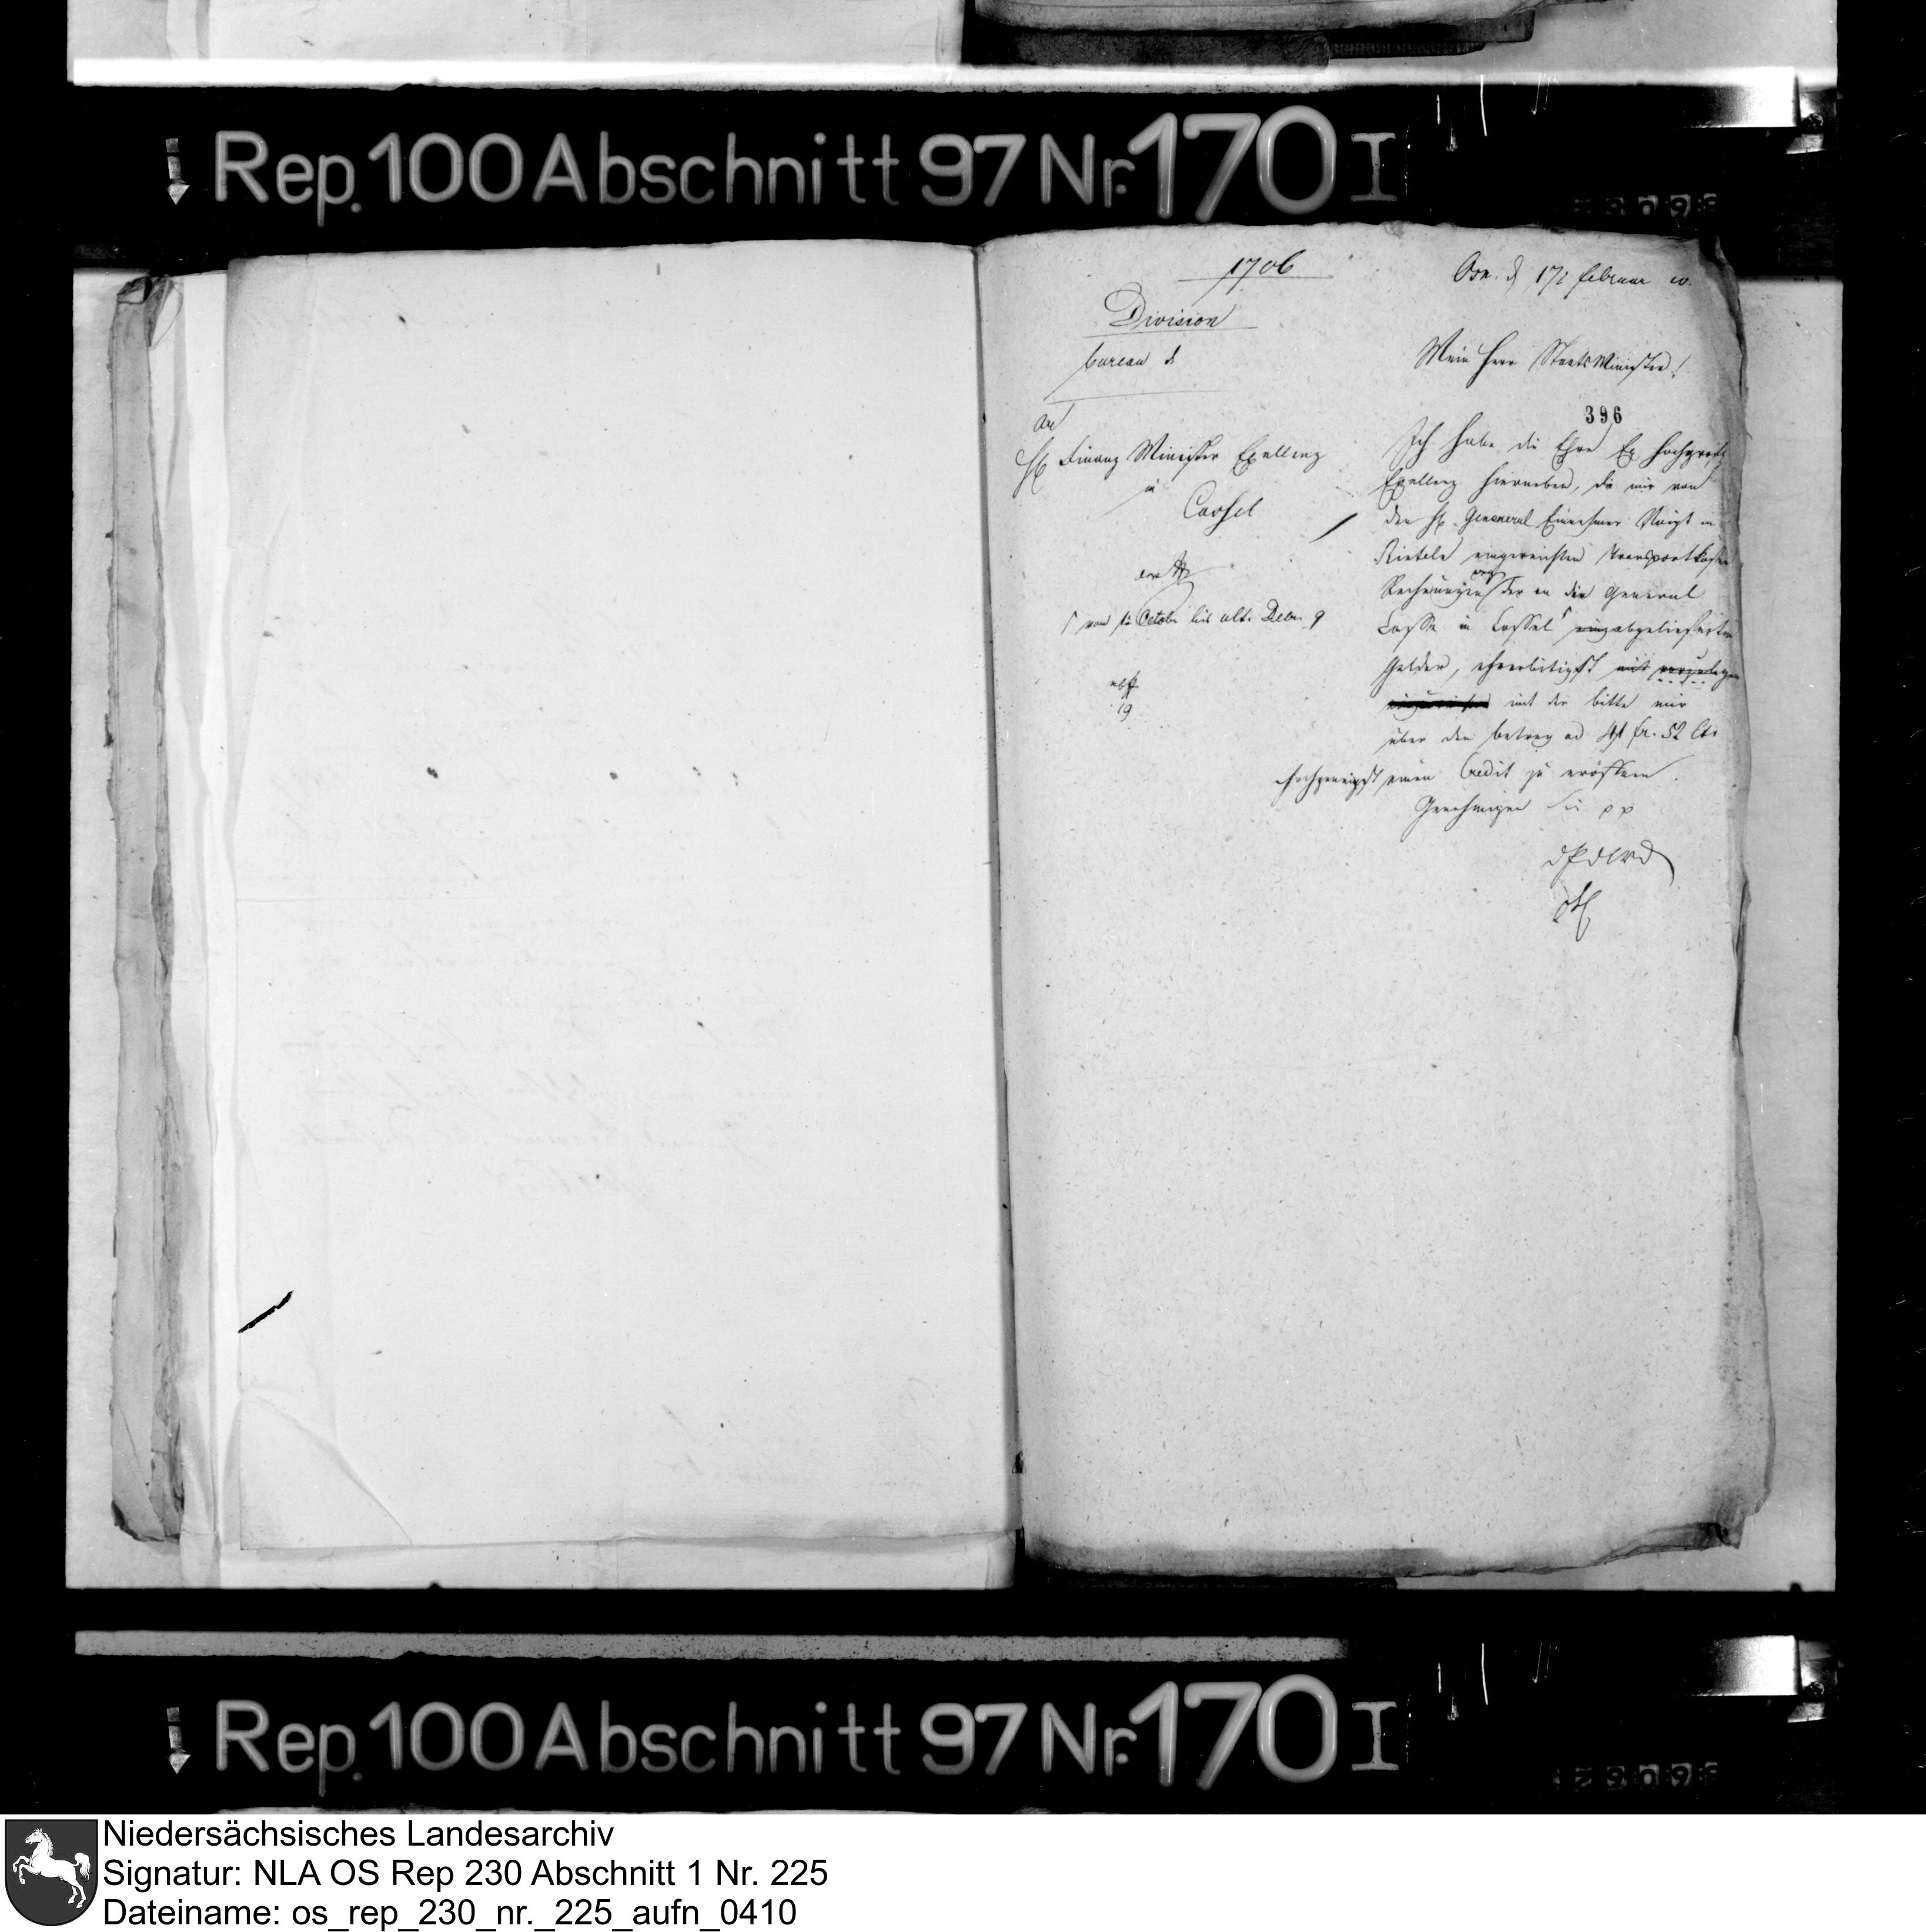 Rep. 100 Abschnitt 97 Nr. 170 I
1706
Division
bureau
An
H Finanz Minister Exellenz
in
Cassel
vom 1t October bis ult. Decbr. 9
19
Osn. d 17t Februar 10.
Mein Herr StaatsMinister!
396
Ich habe die Ehre Ew hochgräfl
Exellenz hierneben, die mir von
den H. General Einnehmer Voigt in
Rinteln eingereichten Transportkosten
Rechnungen der an die General
Casse in Cassel abgelieferten
Gelder, ehrerbietigst mit vorzulegen
mit der bitte mir
über den betrag ad 41 fr. 52 Cts
hochgeneigst einen Credit zu eröffnen.
Genehmigen Sie pp
dPdWD
Rep. 100 Abschnitt 97 Nr. 170 I
Niedersächsisches Landesarchiv
Signatur: NLA OS Rep 230 Abschnitt 1 Nr. 225
Dateiname: os_rep_230_nr._225_aufn_0410